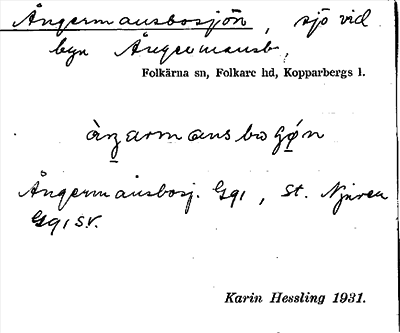 Ångermansbosjön, sjö vid
byn Ångermansb.,
Folkärna sn, Folkare hd, Kopparbergs l.
àŋarmansbog̠ø̠n
Ångermansbosj. Gq1, St. Njuren
Gq1 sv.
Karin Hessling 1931.